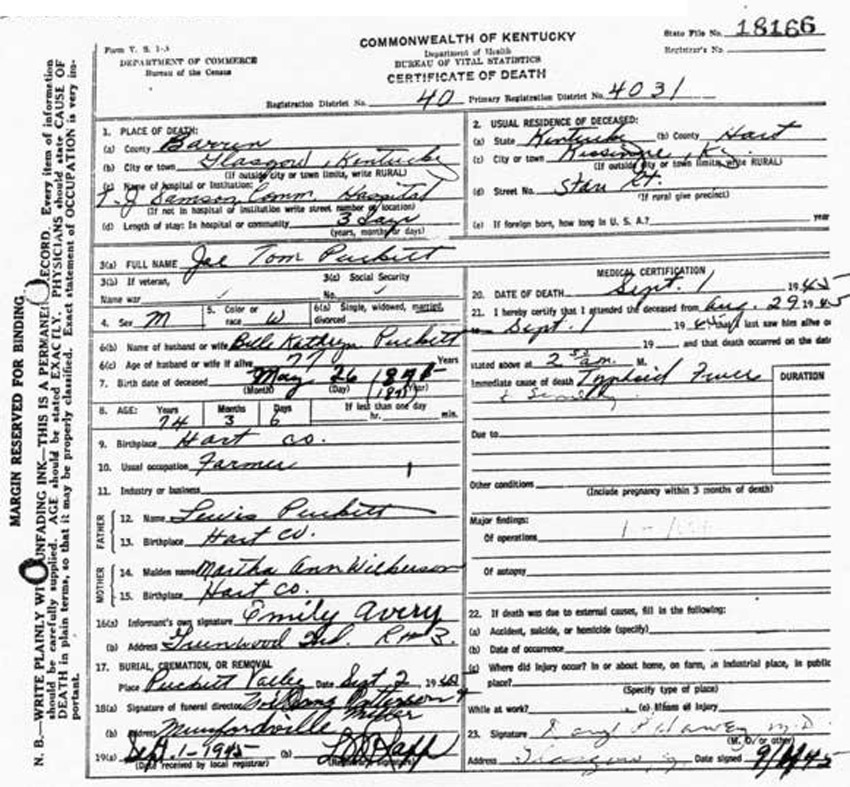 COMMONWEALTH OF KENTUCKY
State File No. 18166
Form V. S. 1-3
Department of Health
Registrar's No.
DEPARTMENT OF COMMERCE
BUREAU OF VITAL STATISTICS
Bureau of the Census
CERTIFICATE OF DEATH
Registration District No. 40 Primary Registration District No. 4031
1. PLACE OF DEATH:
(a) County Barren
(b) City or town Glasgow, Kentucky
(If outside city or town limits, write RURAL)
(c) Name of hospital or Institution:
T. J Samson Comm. Hospital
(If not in hospital or institution write street number or location)
(d) Length of stay: In hospital or community 3 days
(years, months or days)
2. USUAL RESIDENCE OF DECEASED:
(a) State Kentucky (b) County Hart
(c) City or town Ky.
(If outside city or town limits, write RURAL)
(d) Street No. Star Rt.
(If rural give precinct)
(e) If foreign born, how long in U. S. A.? year
3(a) FULL NAME Joe Tom Puckett
3(b) If veteran,
Name war
3(c) Social Security
No.
4. Sex M
5. Color or race W
6(a) Single, widowed, married, divorced
6(b) Name of husband or wife Belle Kathryn Puckett
6(c) Age of husband or wife if alive 77 Years
7. Birth date of deceased May 26
(1871)
(Month) (Day) (Year)
8. AGE: Years Months Days If less than one day
74 3 6 hr. min.
9. Birthplace Hart Co.
10. Usual occupation Farmer
11. Industry or business
FATHER
12. Name Lewis Puckett
13. Birthplace Hart Co.
MOTHER
14. Maiden name Martha Ann Wilkerson
15. Birthplace Hart Co.
16(a) Informant's own signature Emily Avery
(b) Address Greenwood Ind. R # 3
17. BURIAL, CREMATION, OR REMOVAL
Place Puckett Date Sept 2 194
18(a) Signature of funeral director
(b) Address Munfordville
19(a) Sept. 1-1945 (b)
(Date received by local registrar) (Registrar's signature)
MEDICAL CERTIFICATION
20. DATE OF DEATH Sept. 1 1945
21. I hereby certify that I attended the deceased from Aug. 29 1945
Sept. 1 1945 that I last saw him alive o
19 and that death occurred on the date
stated above at 2 am. M.
Immediate cause of death Typhoid Fever
DURATION
Due to
Other conditions
(Include pregnancy within 3 months of death)
Major findings:
Of operations
Of autopsy
22. If death was due to external causes, fill in the following:
(a) Accident, suicide, or homicide (specify)
(b) Date of occurrence
(c) Where did injury occur? In or about home, on farm, in industrial place, in public
place?
(Specify type of place)
While at work? (e) Means of injury
23. Signature M.D.
(M. D. or other)
Address Glasgow, Ky Date signed 45
MARGIN RESERVED FOR BINDING
N. B.—WRITE PLAINLY WI UNFADING INK—THIS IS A PERMANE RECORD. Every item of information
should be carefully supplied. AGE should be stated EXACTLY. PHYSICIANS should state CAUSE OF
DEATH in plain terms, so that it may be properly classified. Exact statement of OCCUPATION is very im-
portant.